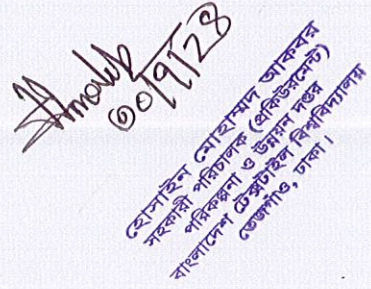 ৩০/৭/২৪
হোসাইন মোহাম্মদ আকবর
সহকারী পরিচালক (প্রকিউরমেন্ট)
পরিকল্পনা ও উন্নয়ন দপ্তর
বাংলাদেশ টেক্সটাইল বিশ্ববিদ্যালয়
তেজগাঁও, ঢাকা।